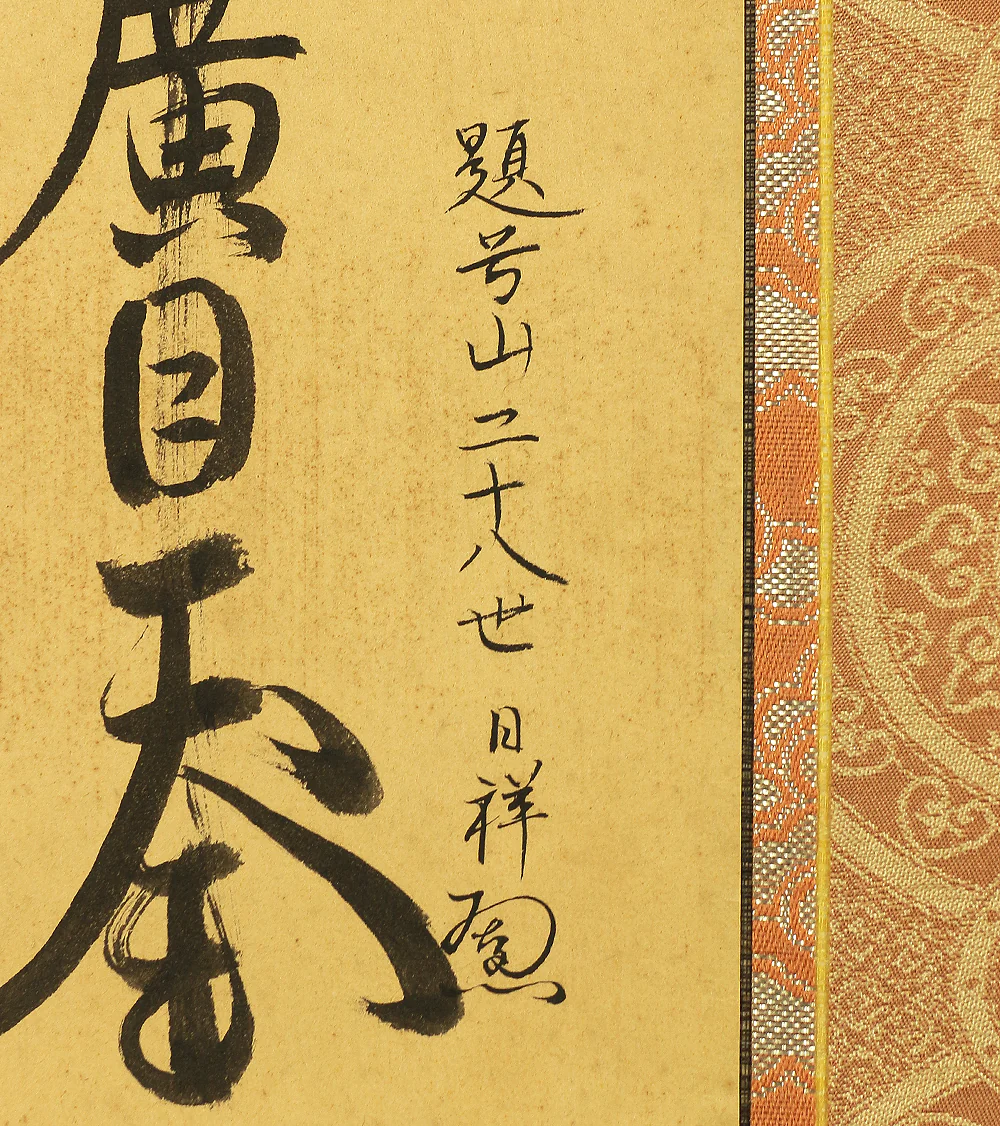 題号山二十八世 日祥
廣目天